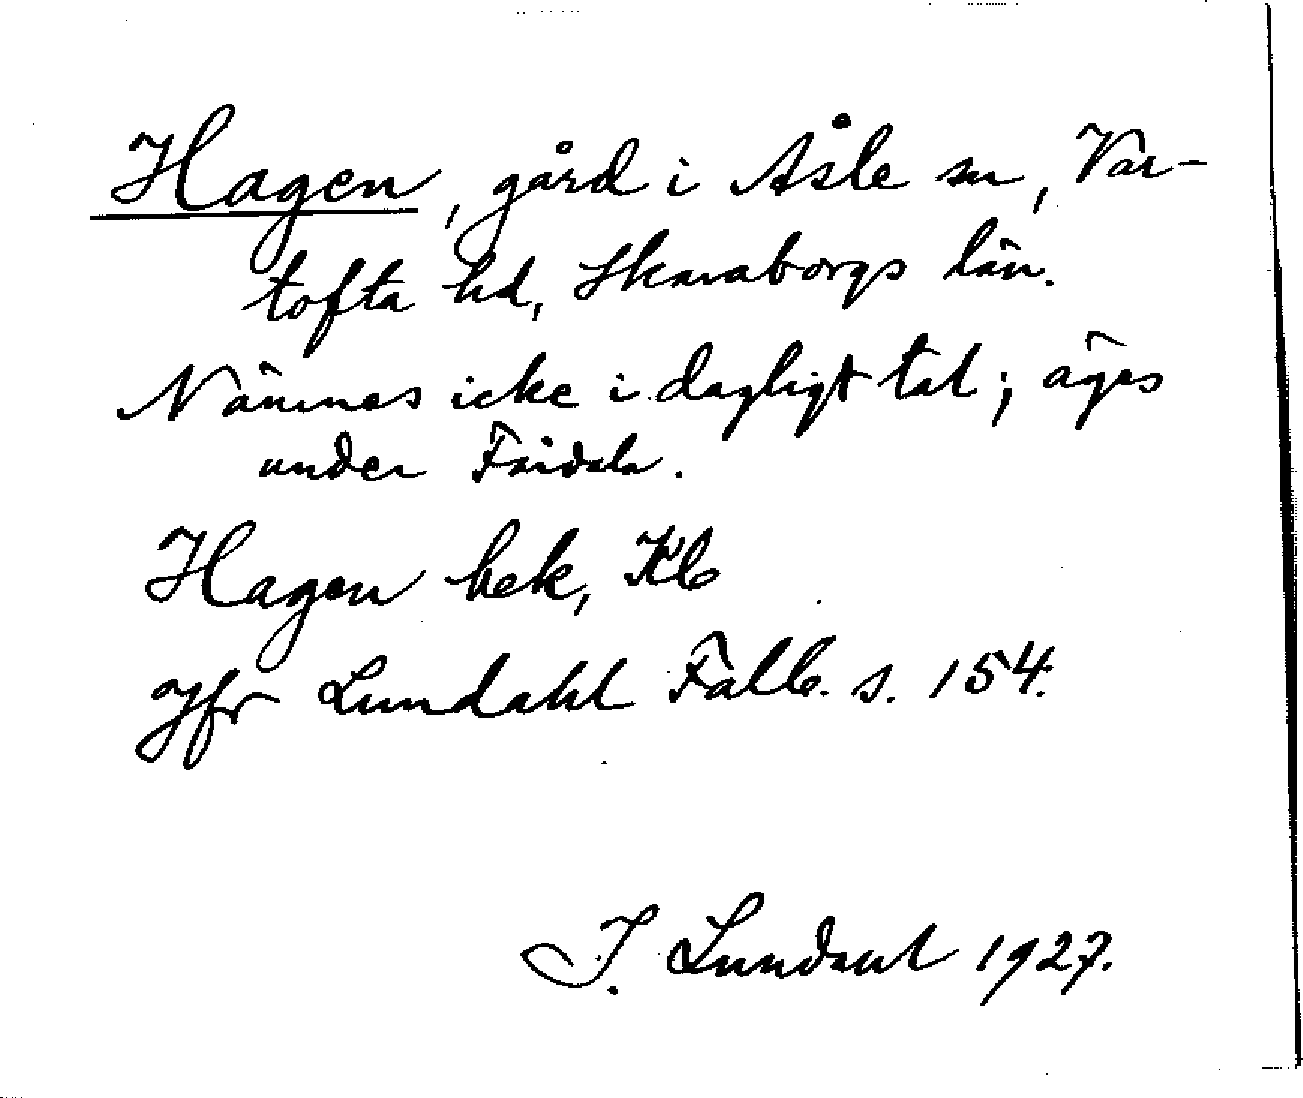 Hagen, gård i Åsle sn, Var-
tofta hd, Skaraborgs län.
Nämnes icke i dagligt tal; äges
under Fårdala.
Hagen bek, Kb
Jfr Lundahl Falb. s. 154.
J. Lundahl 1927.